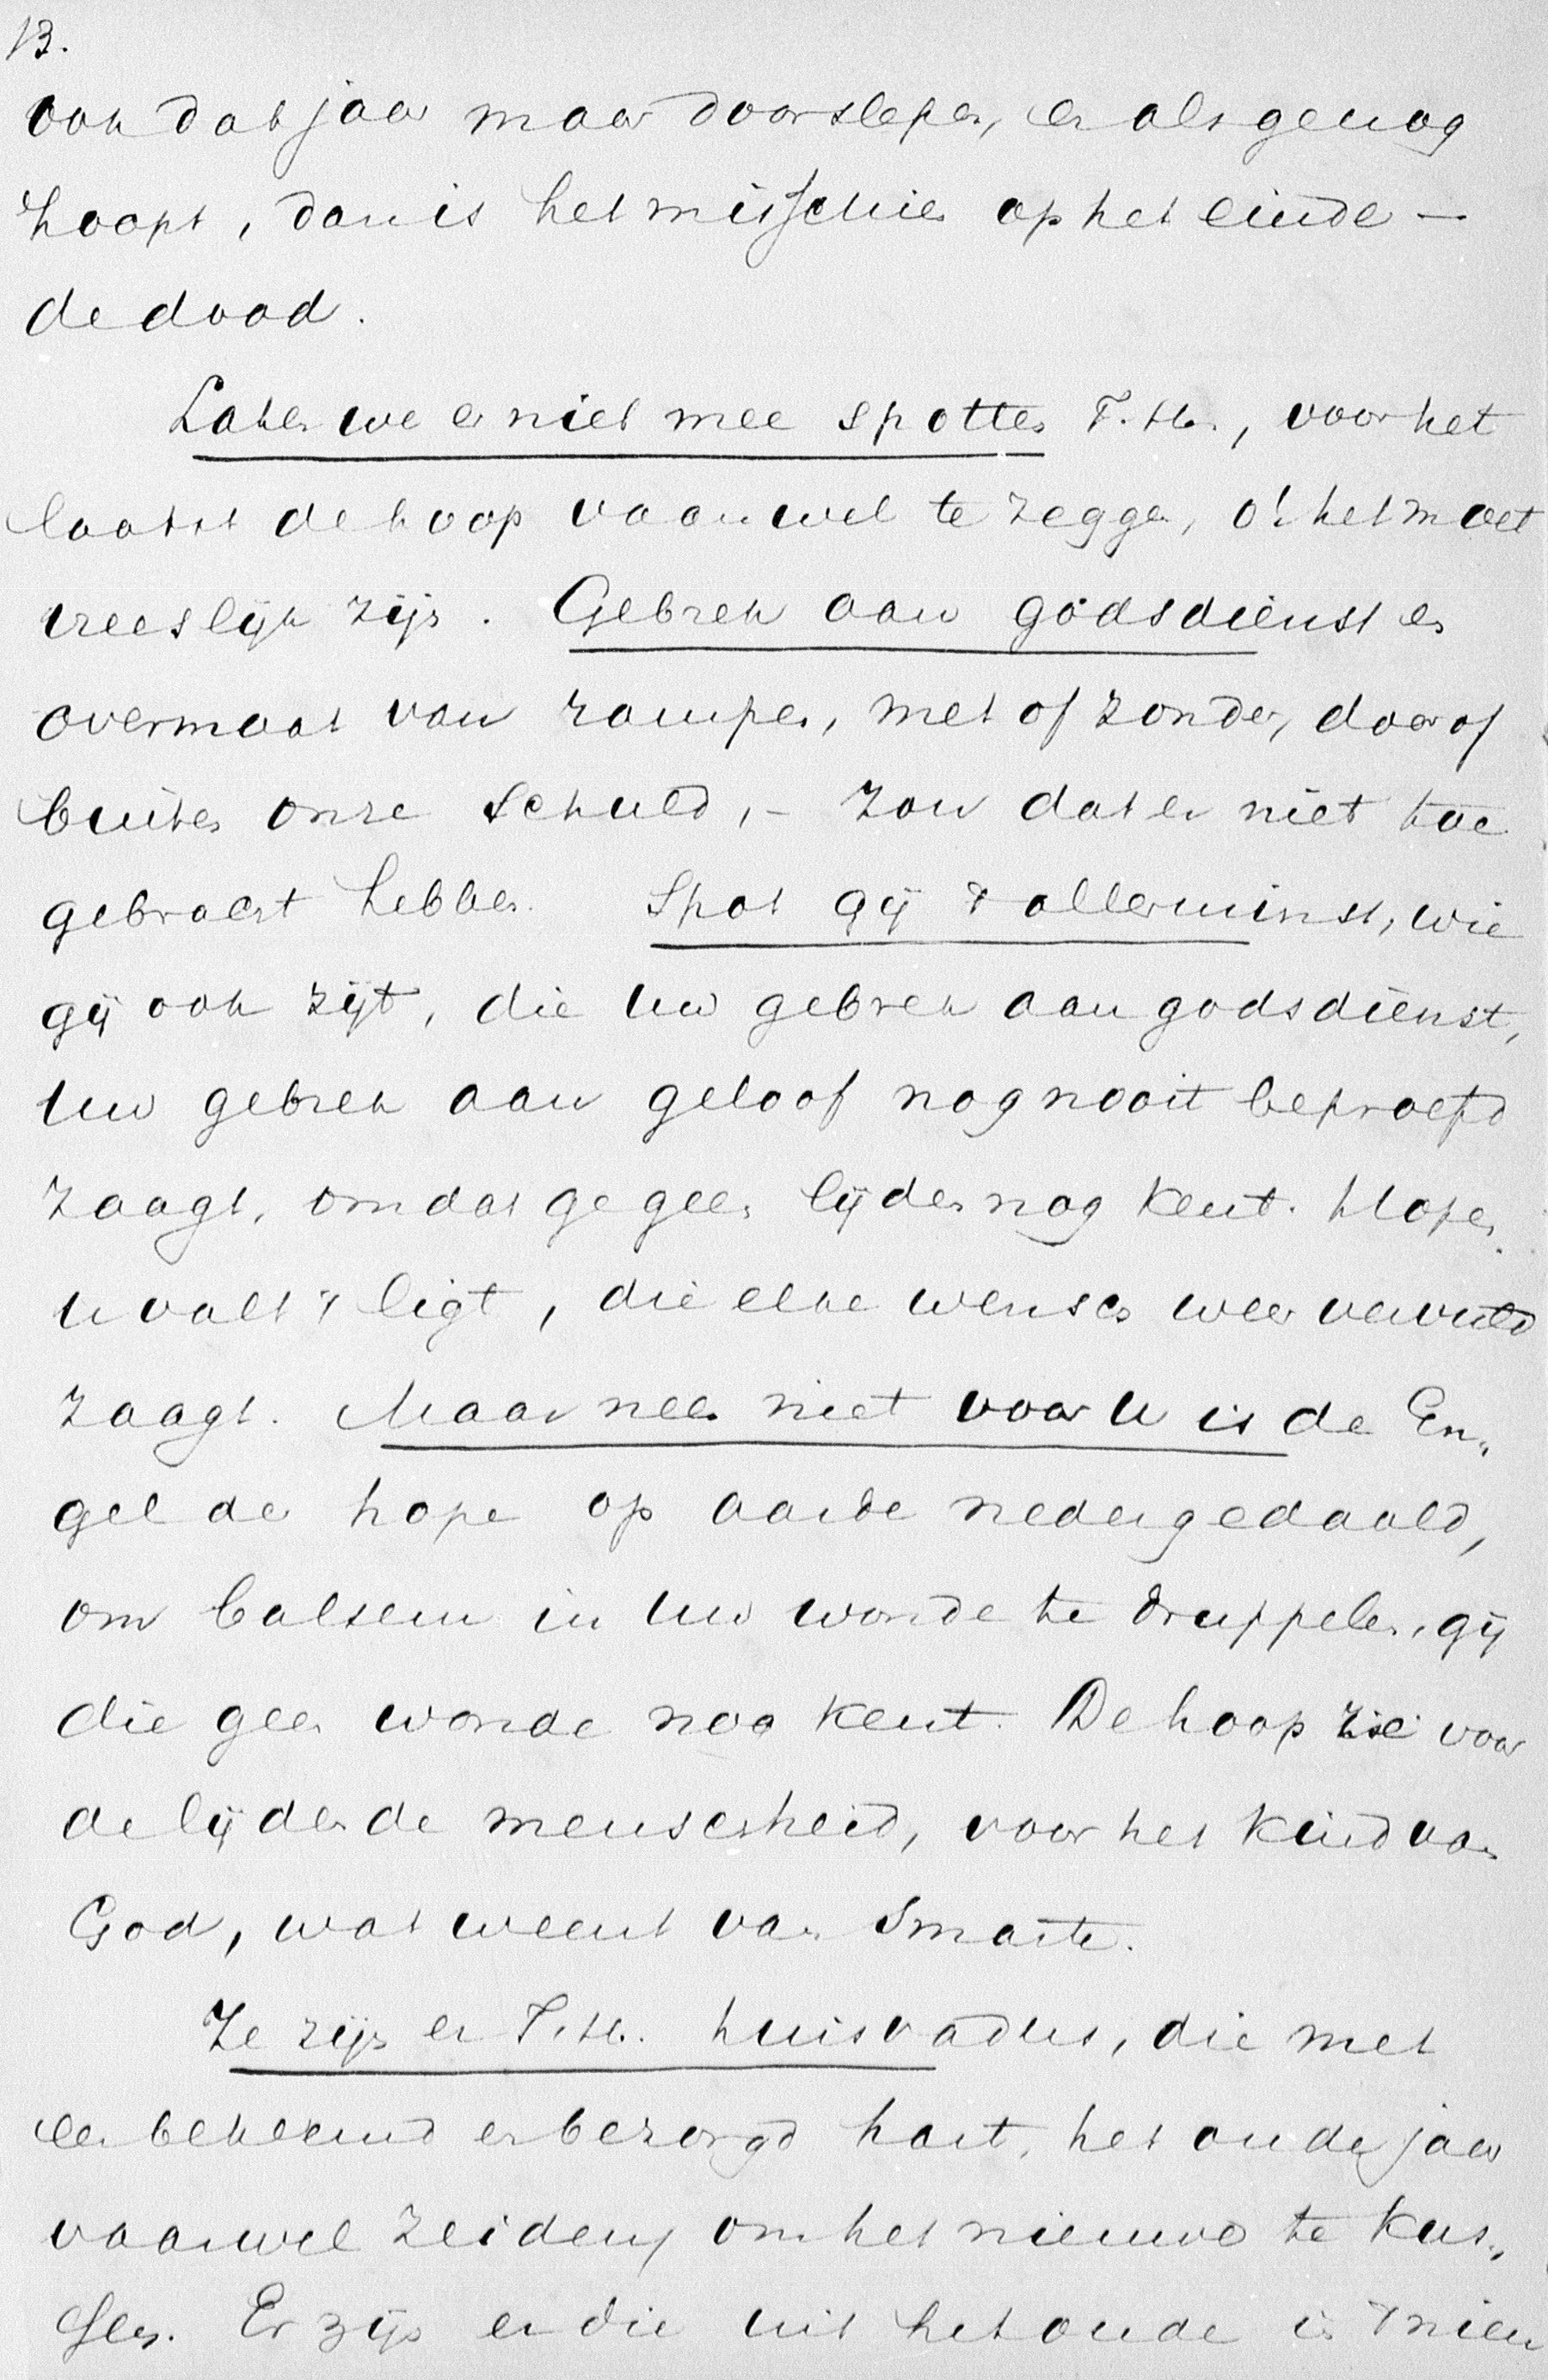 13.
ook dat jaar maar doorslepen, en als genoeg
hoopt, dan is het misschien op het einde —
de dood.
Laten we er niet mee spotten T. H., voor het
laatst de hoop vaarwel te zeggen, o! het moet
vreeslijk zijn. Gebrek aan godsdienst en
overmaat van rampen, met of zonder, door of
buiten onze schuld, – zou dat er niet toe
gebracht hebben. Spot gij 't allerminst, wie
gij ook zijt, die uw gebrek aan godsdienst,
uw gebrek aan geloof nog nooit beproefd
zaagt, omdat ge geen lijden nog kent. Hopen
u valt 't ligt, die elke wensch weer vervuld
zaagt. Maar neen niet voor u is de En„
gel der hope op aarde nedergedaald,
om balsem in uw wonde te druppelen, gij
die geen wonde nog kent. De hoop zie voor
de lijdende menschheid, voor het kind van
God, wat weent van smarte.
Ze zijn er T. H. huisvaders, die met
een beklemd en bezorgd hart, het oude jaar
vaarwel zeiden, om het nieuwe te kus„
sen. Er zijn er die uit het oude in 't nieu